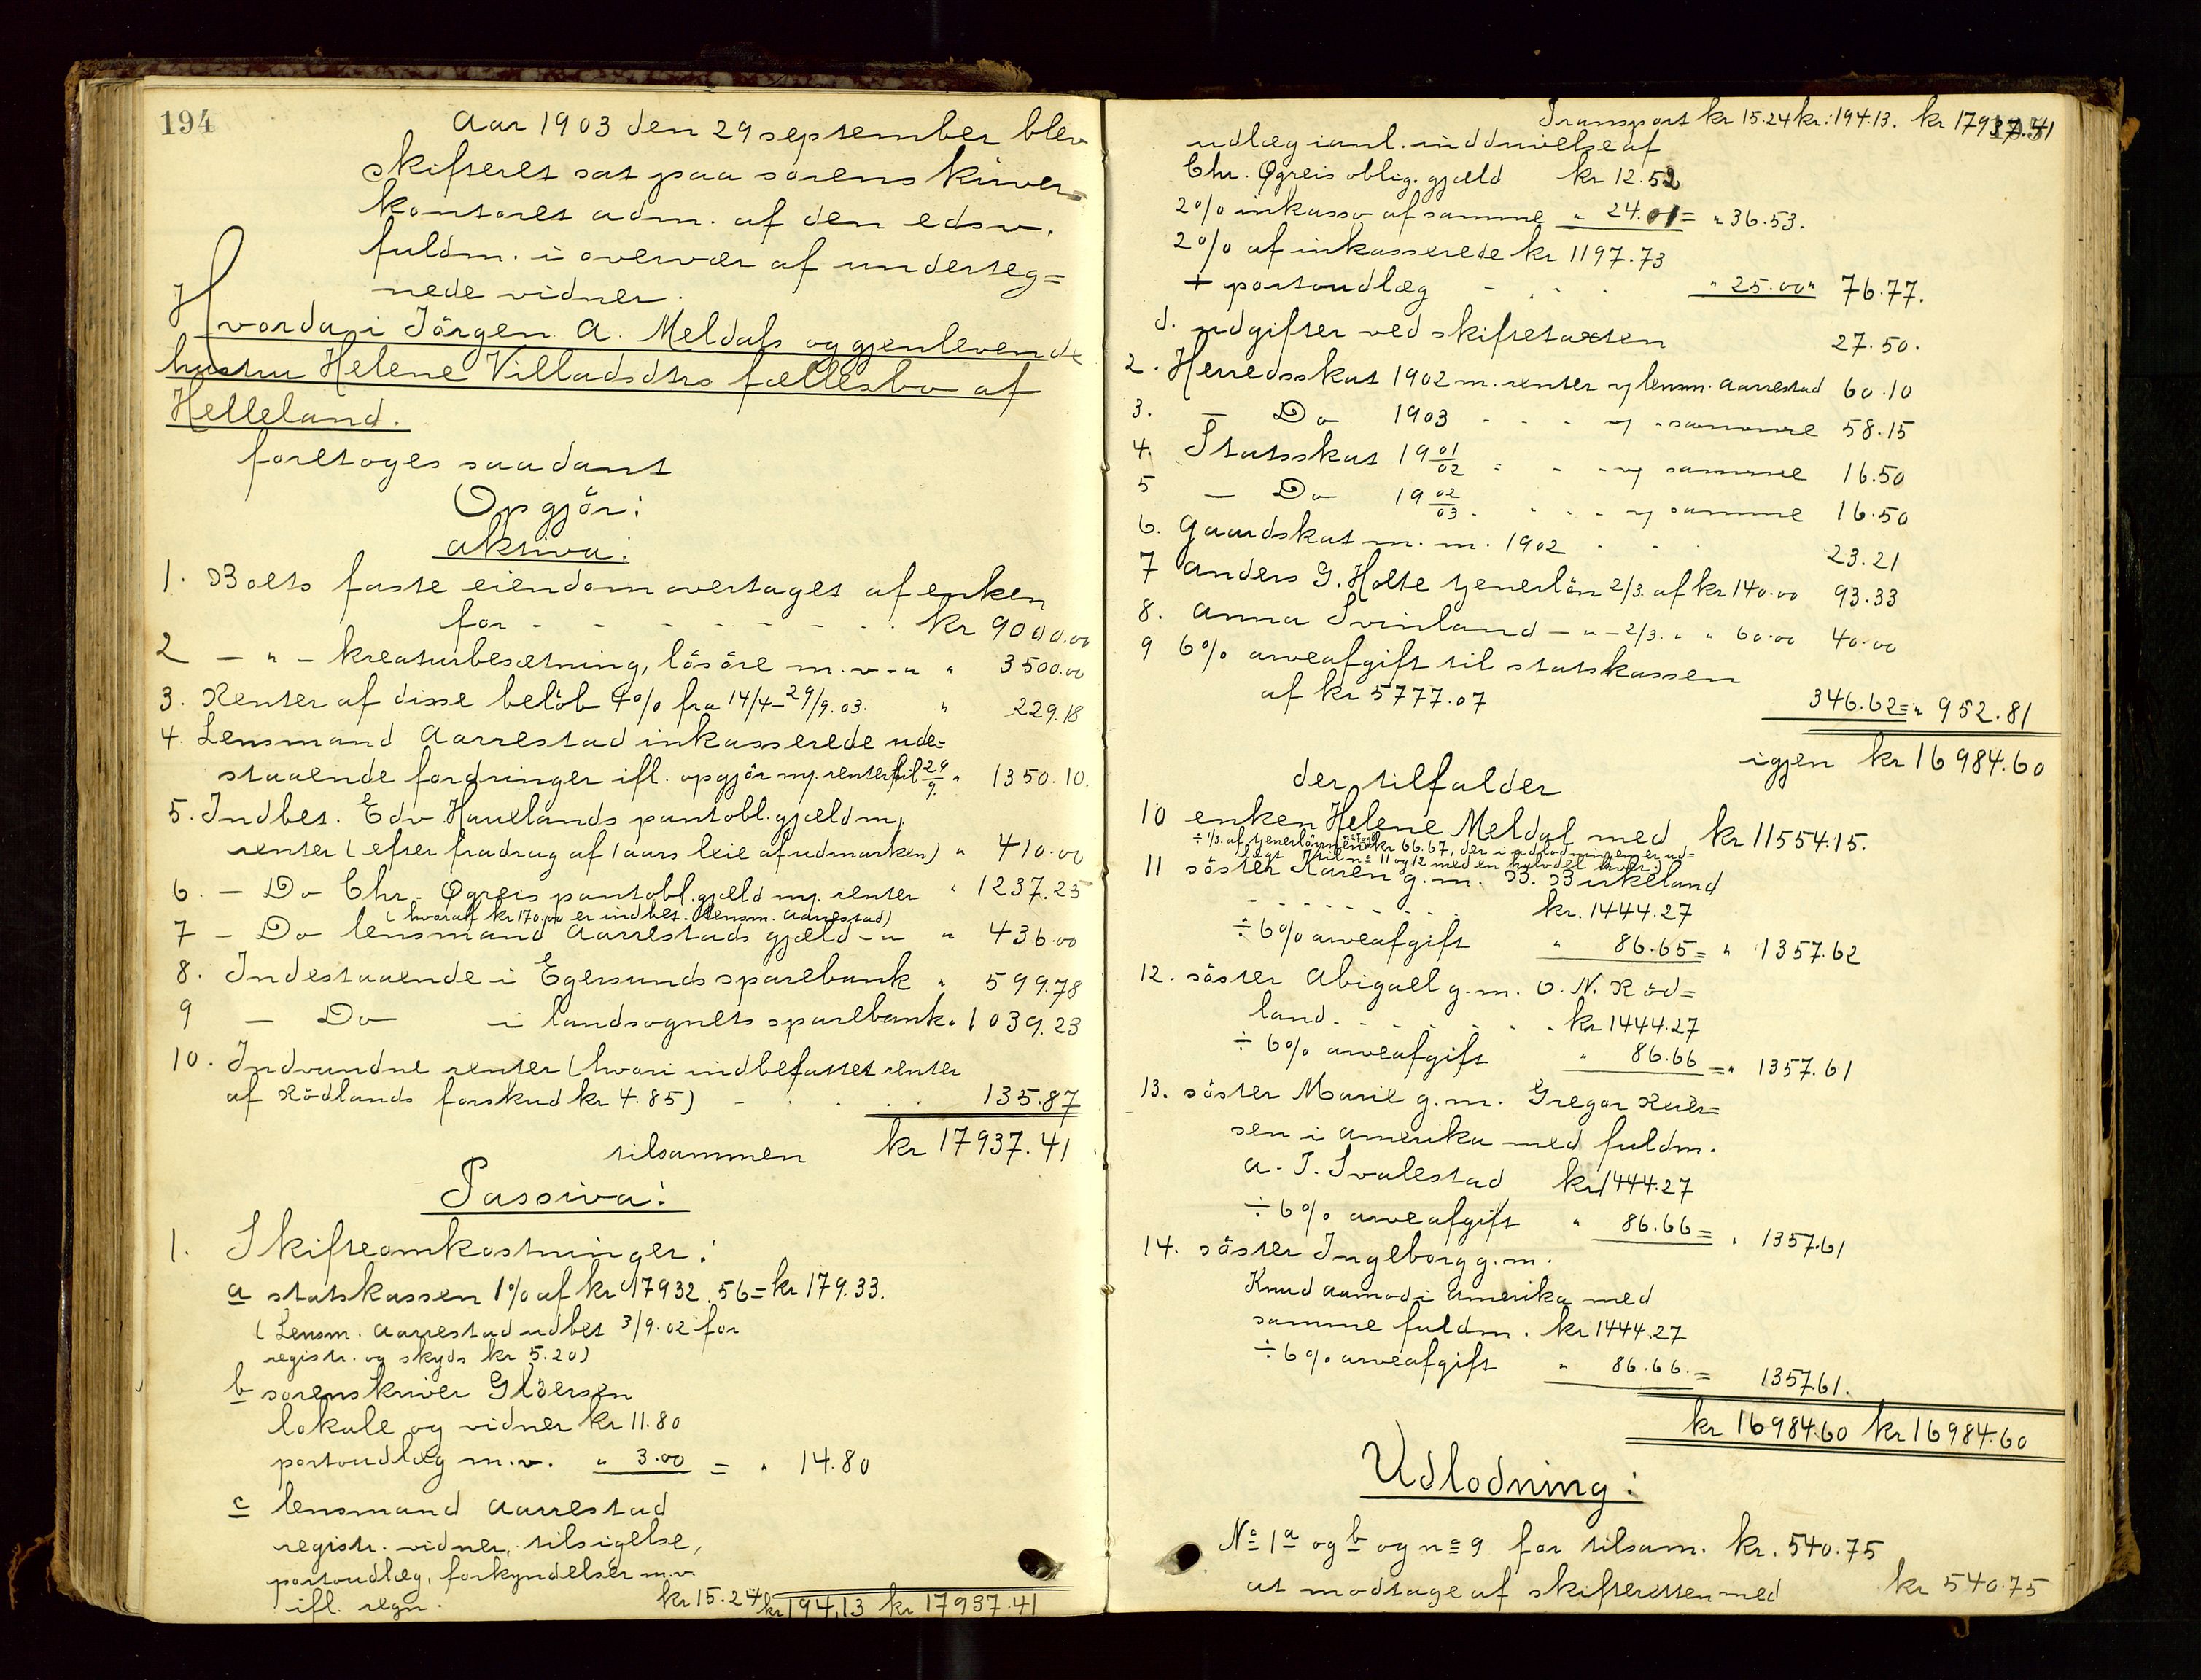 194
Aar 1903 den 29 september blev
skifteret sat paa sorenskriver-
kontoret adm. af den edsv.
fuldm. i overvær af underteg=
nede vidner.
Hvorda i Jörgen A. Meldals og gjenlevende
hustru Helene Villadsdtrs fællesbo af
Helleland.
foretoges saadant
Opgjör:
Aktiva:
1. Boets faste eiendom overtaget af enken
for - - - - - - - kr 9000.00
2 - " - kreaturbesætning, lösöre m.v. - " " 3500.00
3. Renter af disse belöb 4% fra 14/4-29/9.03. " 229.18
4. Lensmand Aarrestad inkasserede ude=
staaende fordringer ifl. opgjör m/ renter til 29/9. " 1350.10.
5. Indbet. Edv. Hauelands pantobl. gjæld m/
renter (efter fradrag af 1 aars leie af udmarken) " 410.00
6. - Do Chr. Øgreis pantobl. gjæld m/ renter " 1237.25
(hvoraf kr 170.00 er indbet. lensm. Aarrestad)
7 - Do lensmand Aarrestads gjæld - " " 436.00
8. Indestaaende i Egersunds sparebank " 599.78
9 - Do - i landsognets sparebank " 1039.23
10. Indvundne renter (hvori indbefattet renter
af Rödlands forskud kr 4.85) - . . . 135.87
tilsammen kr 17937.41
Passiva:
1. Skifteomkostninger:
a statskassen 1% af kr 17932.56 = kr 179.33.
(Lensm. Aarrestad udbet 3/9.02 for
registr. og skyds kr 5.20)
b sorenskriver Glöersen
lokale og vidner kr 11.80
portoudlæg m.v. " 3.00 = " 14.80
c lensmand Aarrestad
registr. vidner, tilsigelse,
portoudlæg, forkyndelser m.v.
ifl. regn. kr 15.24 kr 194.13 kr 17937.41
Transport kr 15.24 kr. 194.13. kr 17937.41
udlæg i anl. inddrivelse af
Chr. Øgreis oblig. gjæld kr 12.52
2% inkasso af samme " 24.01 = " 36.53.
2% af inkasserede kr 1197.73
+ portoudlæg - . . " 25.00 " 76.77.
d. udgifter ved skiftetaxten 27.50.
2. Herredsskat 1902 m. renter t/ lensm. Aarrestad 60.10
3. - Do 1903 . . . t/ samme 58.15
4. Statsskat 19 01/02 " - - t/ samme 16.50
5 - Do 19 02/03 . . . . t/ samme 16.50
6. Gaardskat m. m. 1902 . . 23.21
7 Anders G. Holte tjenerlön 2/3 af kr 140.00 93.33
8. Anna Svinland - " - 2/3. " " 60.00 40.00
9 6% arveafgift til statskassen
af kr 5777.07 346.62 = " 952.81
igjen kr 16984.60
der tilfalder
10 enken Helene Meldal med kr 11554.15.
÷ 1/3. af tjenerlönnen kr 66.67, der i udlodningen er ud=
lagt til no 11 og 12 med en halvdel hver.)
11 söster Karen g. m. B. Birkeland
- - - - - - - - kr. 1444.27
÷ 6% arveafgift " 86.65 = " 1357.62
12. söster Abigael g. m. O. N. Röd=
land. - - - - - - kr 1444.27
÷ 6% arveafgift " 86.66 = " 1357.61
13. söster Marie g. m. Gregor
sen i Amerika med fuldm.
A. T. Svalestad kr 1444.27
÷ 6% arveafgift " 86.66 = " 1357.61
14. söster Ingeborg g. m.
Knud Aamod i Amerika med
samme fuldm. kr 1444.27
÷ 6% arveafgift " 86.66. = 1357.61.
kr 16984.60 kr 16984.60
Udlodning:
No 1 a og b og no 9 for tilsam. kr. 540.75
at modtage af skifteretten med kr 540.75